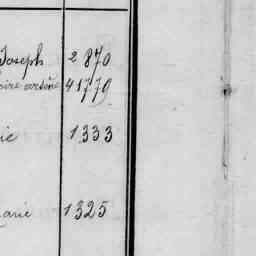 Joseph 2 870
arsène 41779
ie 1333
arie 1325